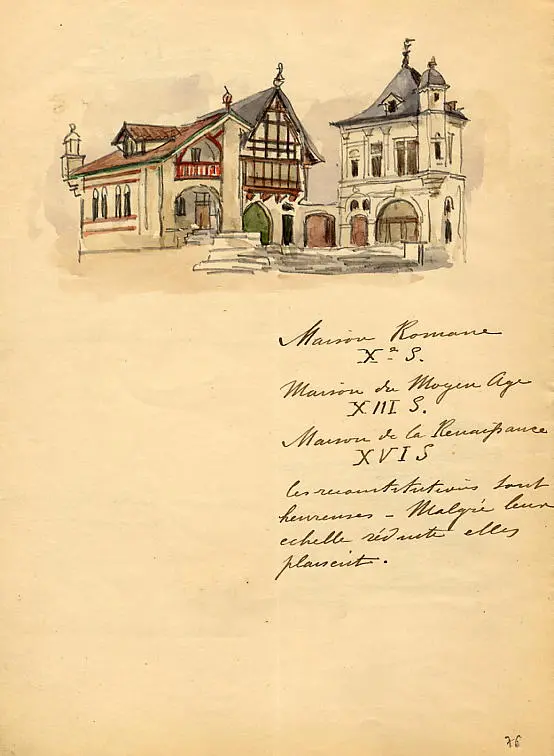 Maison Romane
Xe S.
Maison du Moyen Age
XIII S.
Maison de la Renaissance
XVI S
Ces reconstitutions sont
heureuses - Malgré leur
echelle réduite elles
plaisent.
76